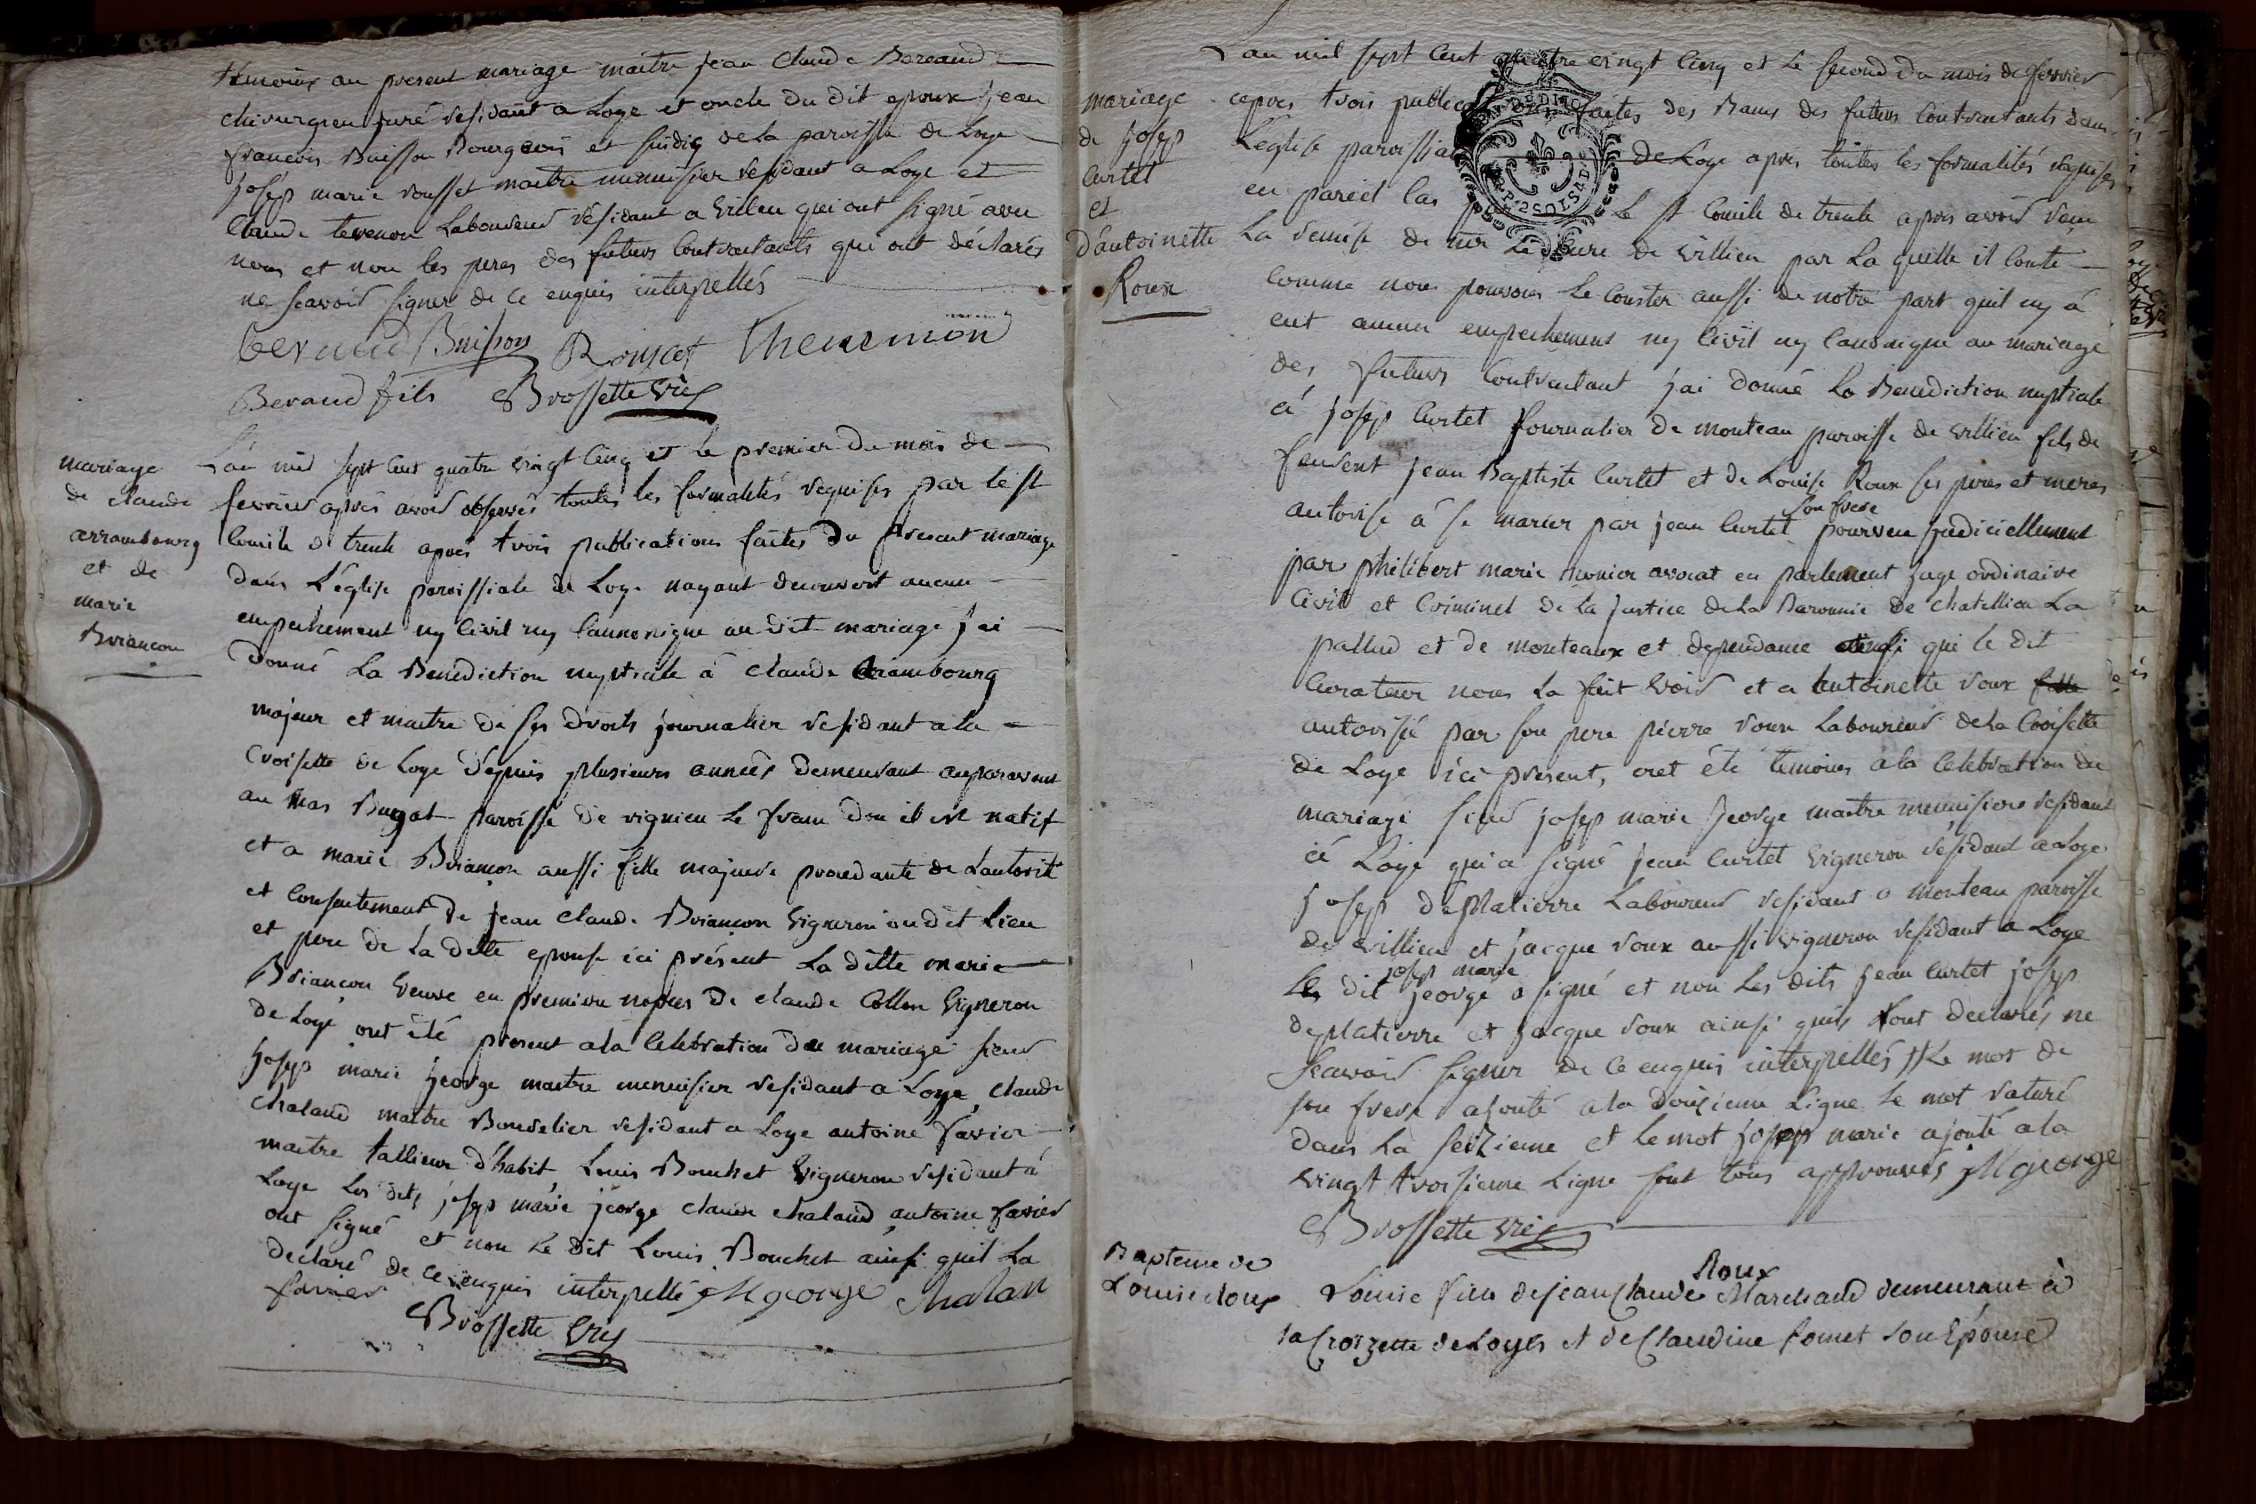 temoins au present mariage maitre jean Claude Beraud
chirurgien juré residant a Loye et oncle du dit epoux jean
francois Buisson Bourgeois et sindiq de la paroisse de Loye
josep marie rousset maitre menuisier residant a Loye et
Claude tevenon Laboureur residant a villieu qui ont signé avec
nous et non les peres des futurs Contractants qui ont déclarés
ne scavoir signer de ce enquis interpellés
Beraud Buisson Rousset Thevenon
Beraud fils Brossette vic
mariage
de claude
arrambourg
et de
marie
Briancon
L'an mil sept cent quatre vingt cinq et le premier du mois de
fevrier apres avoir observés toutes les formalités requises par le st
Concile de trente apres trois publications faites du present mariage
dans L'église paroissiale de Loye nayant decouvert aucun
empechement ny Civil ny Cannonique au dit mariage j'ai
donné La Benediction nuptiale à claude arrambourg
majeur et maitre de ses droits journalier residant a la
Croisette de Loye depuis plusieurs années demeurant auparavent
au mas Bugat paroisse de vignieu le franc dou il est natif
et a marie Briancon aussi fille majeure procedante de L'autorité
et consentement de jean claude Briancon vigneron au dit Lieu
et pere de La ditte epouse ici présent La ditte marie
Briancon veuve en premiere noces de claude Collon vigneron
de Loye ont été present a la Celebration du mariage sieur
josep marie jeorge maitre menuisier residant a Loye claude
chaland maitre Bourelier residant a Loye antoine favier
maitre tallieur d'habit Louis Bouchet vigneron residant à
Loye Les dits josep marie jeorge claude chaland antoine favier
ont signé et non le dit Louis Bouchet ainsi quil La
declaré de ce enquis interpellé JM george Chalan
favier
Brossette vic
mariage
de josep
Curtet
et
d'antoinette
Roux
L'an mil sept Cent quatre vingt Cinq et le second du mois de fevrier
apres trois publications faites des Bans des futurs Contractants dans
L'église paroissiale de Loye apres toutes les formalités requises
en pareil Cas par Le st Concile de trente apres avoir veu
La remise de mr Le Cure de villieu par La quelle il Conte
Comme nous pouvons le Conster aussi de notre part quil ny á
eut aucun empechement ny Civil ny Canonique au mariage
des futurs Contractant j'ai donné La Benediction nuptiale
á josep Curtet journalier de monteau paroisse de villieu fils de
feu jean Baptiste Curtet et de Louise Roux ses peres et meres
autorise á se marier par jean Curtet son frere pourveu judiciellement
par philibert marie monier avocat en parlement juge ordinaire
Civil et Criminel de la justice de La Baronnie de chatillion La
pallud et de monteaux et dependance ainsi que le dit
Curateur nous La fait voir et a antoinette roux fille
autorisée par son pere pierre roux Laboureur de la Croisette
de Loye ici present, ont été temoins à la Celebration du
mariage sieur josep marie jeorge maitre menuisiere residant
á Loye qui a signé jean Curtet vigneron residant a Loye
josep deplatierre Laboureur residant a monteau paroisse
de villieu et jacque roux aussi vigneron residant a Loye
Le dit josep marie jeorge a signé et non Les dits jean Curtet josep
deplatierre et jacque roux ainsi quils L'ont declarés ne
scavoir signer de ce enquis interpellés // Le mot de
son frere ajouté a la douzieme Ligne le mot raturé
dans La seizieme et le mot josep marie ajouté a la
vingt troisieme Ligne sont tous approuvés JM george
Brossette vic
Bapteme de
Louise Roux
Louise Fille de jean Claude Roux Marchand demeurant à
la Croizette de Loyes et de Claudine Comet son Epouse